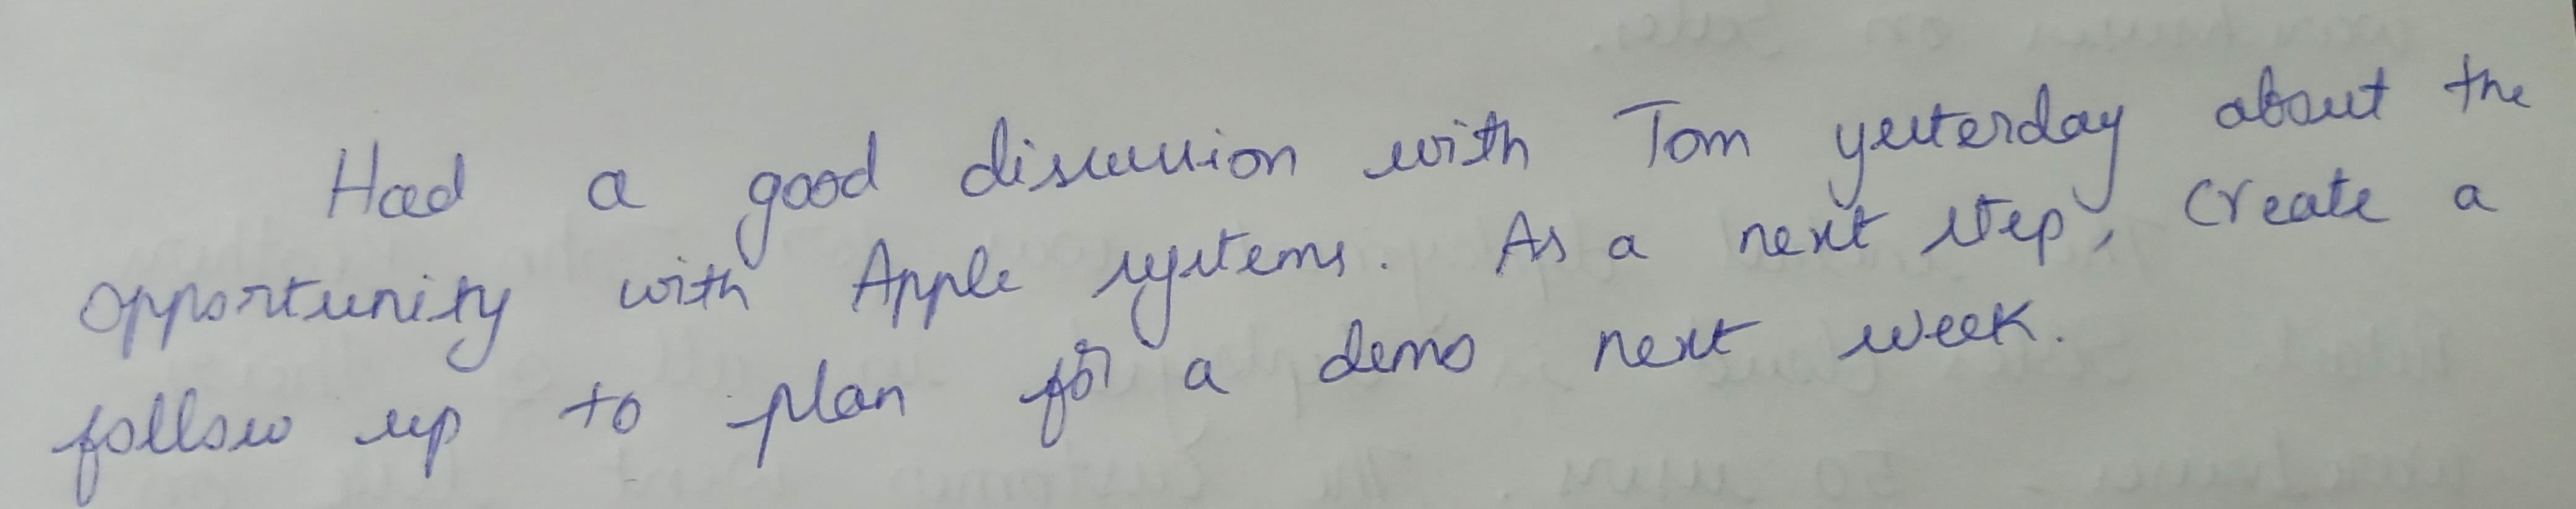 Had a good discussion with Tom yesterday about the
opportunity with Apple systems. As a next step, create a
follow up to plan for a demo next week.